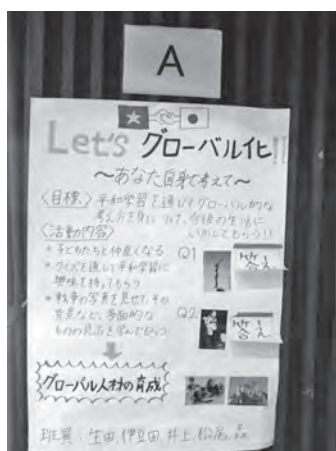 A
Let's グローバル化!!
～あなた自身で考えて～
〈目標〉平和学習を通してグローバル的な
考え方を身につけて、今後の生活に
いかしてもらう!!
〈活動内容〉
* 子どもたちと仲良くなる
* クイズを通して平和学習に
興味を持ってもらう
* 戦争の写真を見せて、その
背景など、多面的な
ものの見方を学んでもらう
Q1
答え
Q2
答え
グローバル人材の育成
班員：生田、伊豆田、井上、松尾、森